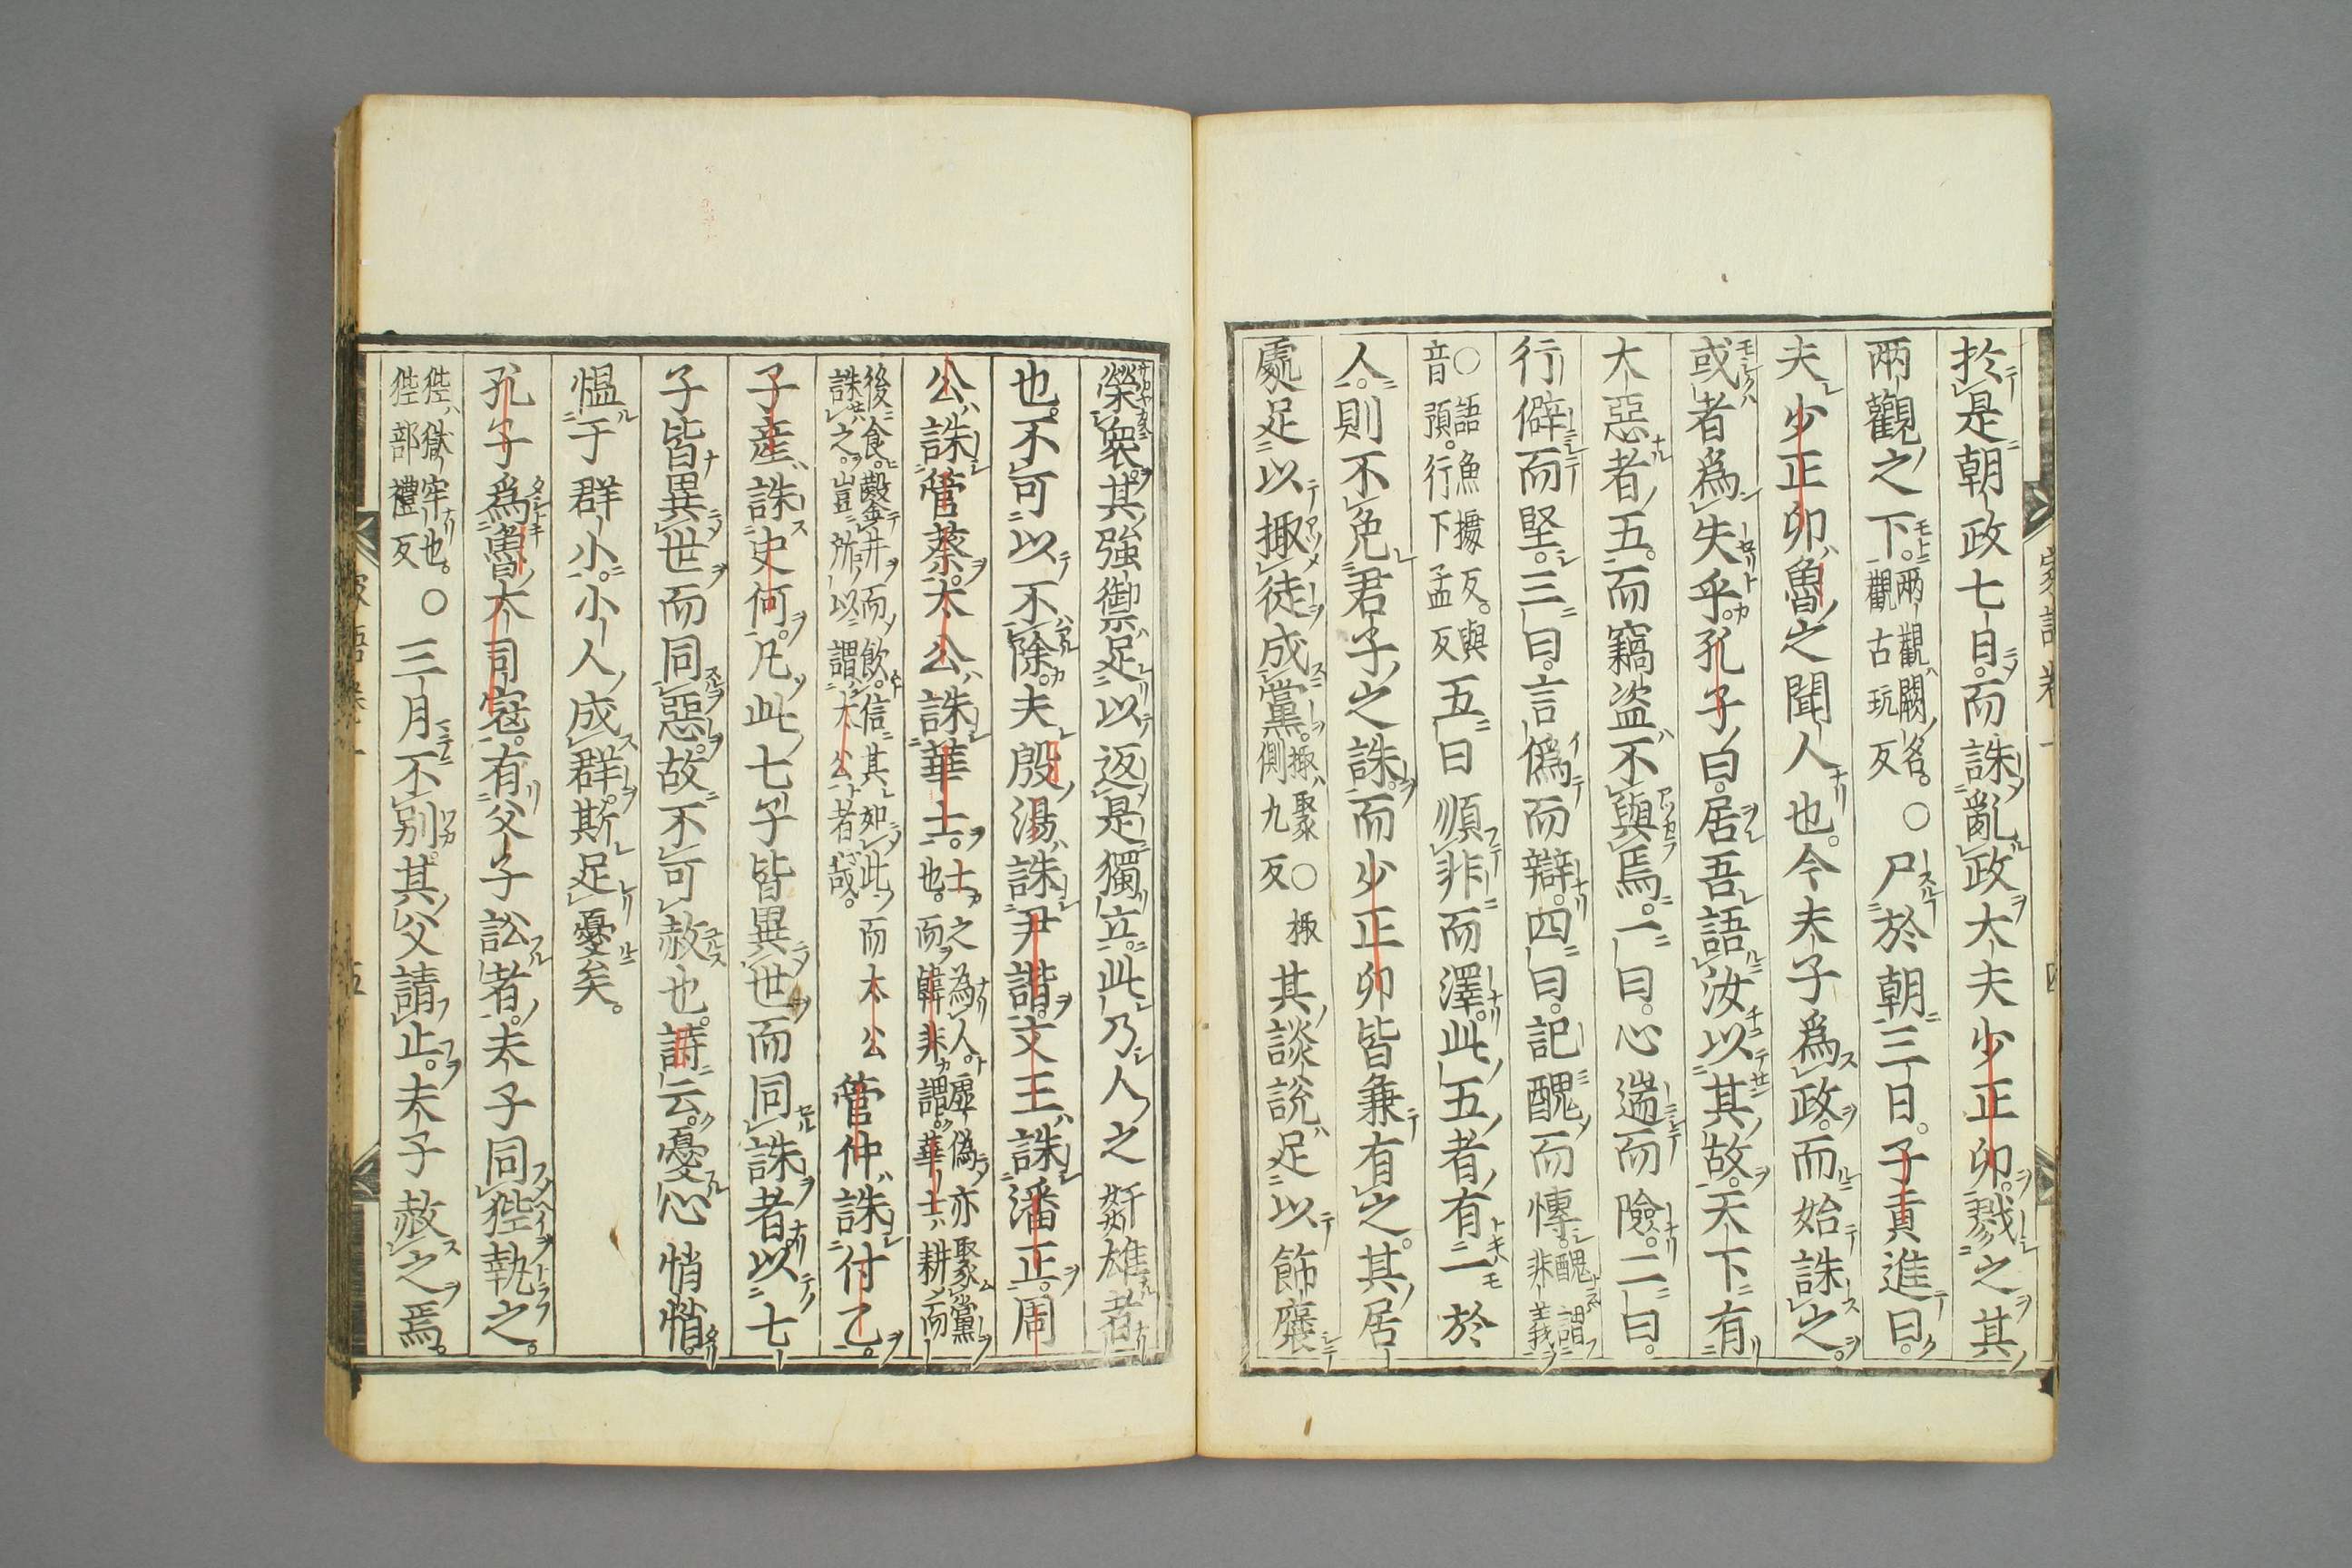 於是朝政七日而誅亂政大夫少正卯戮之其
兩觀之下兩觀闕名。觀古玩反○尸於朝三日。子貢進曰。
夫少正卯魯之聞人也。今夫子爲政。而始誅之。
或者爲失乎。孔子曰。居吾語汝以其故。天下有
大惡者五。而竊盜不與焉。一曰。心逆而險。二曰。
行僻而堅。三曰。言僞而辯。四曰。記醜而愽。醜謂非義
○語魚據反。與音預。行下孟反五曰順非而澤。此五者有一於
人。則不免君子之誅。而少正卯皆兼有之。其居
處足以掫徒成黨。掫聚○掫側九反其談說足以飾褒
榮衆。其強禦足以返是獨立。此乃人之姧雄者
也。不可以不除。夫殷湯誅尹諧。文王誅潘正。周
公誅管蔡。太公誅華士。士之為人。虛偽亦聚黨也。而韓非謂。華士耕而
後食。鑿井而飲。信其如此。而太公誅之。豈所以謂太公者哉。管仲誅付乙。
子產誅史何。凡此七子皆異世而同誅者以七
子皆異世而同惡。故不可赦也。詩云。憂心悄悄。
慍于群小。小人成群。斯足憂矣。
孔子爲魯大司寇。有父子訟者。夫子同狴執之。
狴獄牢也。狴部禮反○三月不別。其父請止。夫子赦之焉。